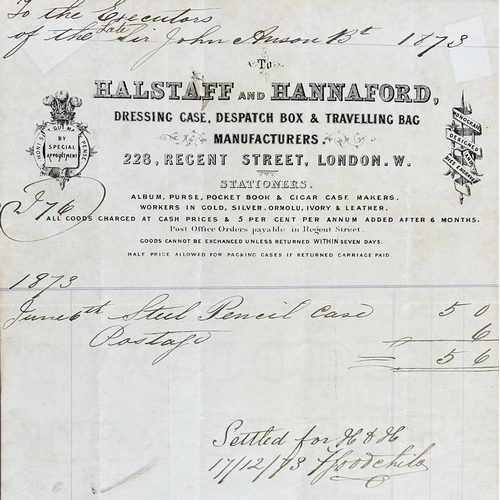 To the Executors
of the Late Sir John Anson Bt 1873
To
HALSTAFF AND HANNAFORD,
DRESSING CASE, DESPATCH BOX & TRAVELLING BAG
MANUFACTURERS.
228, REGENT STREET, LONDON. W.
BY
SPECIAL
APPOINTMENT
MONOGRAMS
DESIGNED
STATIONERS.
ALBUM, PURSE, POCKET BOOK & CIGAR CASE MAKERS.
WORKERS IN GOLD, SILVER, ORMOLU, IVORY & LEATHER.
ALL GOODS CHARGED AT CASH PRICES & 5 PER CENT PER ANNUM ADDED AFTER 6 MONTHS.
Post Office Orders payable in Regent Street.
GOODS CANNOT BE EXCHANGED UNLESS RETURNED WITHIN SEVEN DAYS.
HALF PRICE ALLOWED FOR PACKING CASES IF RETURNED CARRIAGE PAID.
1873
June 6th Steel Pencil Case 5 0
Postage 6
5 6
Settled for H & H
17/12/73